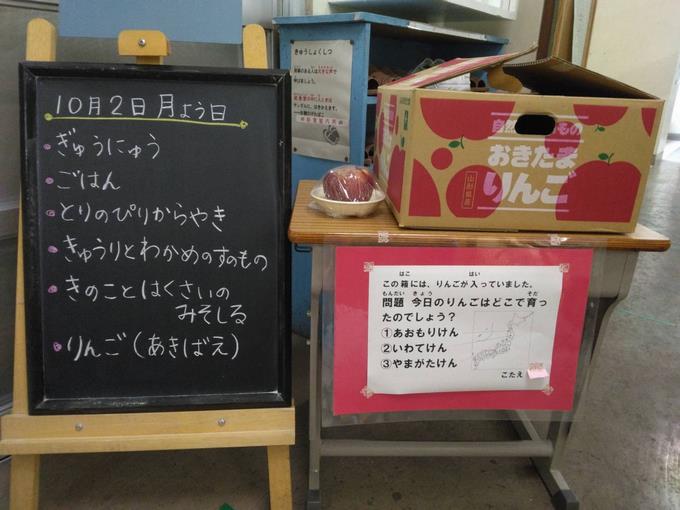 10月2日月よう日
ぎゅうにゅう
ごはん
とりのぴりからやき
きゅうりとわかめのすのもの
きのことはくさいの
みそしる
りんご(あきばえ)
きゅうしょくしつ
おきたま
山形県産
りんご
はこ はい
この箱には、りんごが入っていました。
もんだい きょう そだ
問題 今日のりんごはどこで育っ
たのでしょう?
①あおもりけん
②いわてけん
③やまがたけん
こたえ